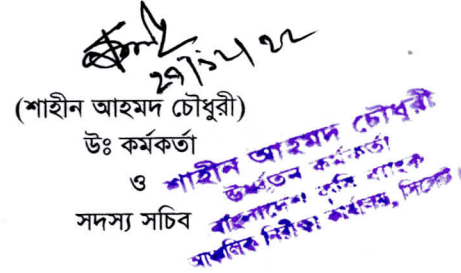 29/12/22
(শাহীন আহমদ চৌধুরী)
উঃ কর্মকর্তা
ও
সদস্য সচিব
শাহীন আহমদ চৌধুরী
উর্ধ্বতন কর্মকর্তা
বাংলাদেশ কৃষি ব্যাংক
আঞ্চলিক নিরীক্ষা কার্যালয়, সিলেট।